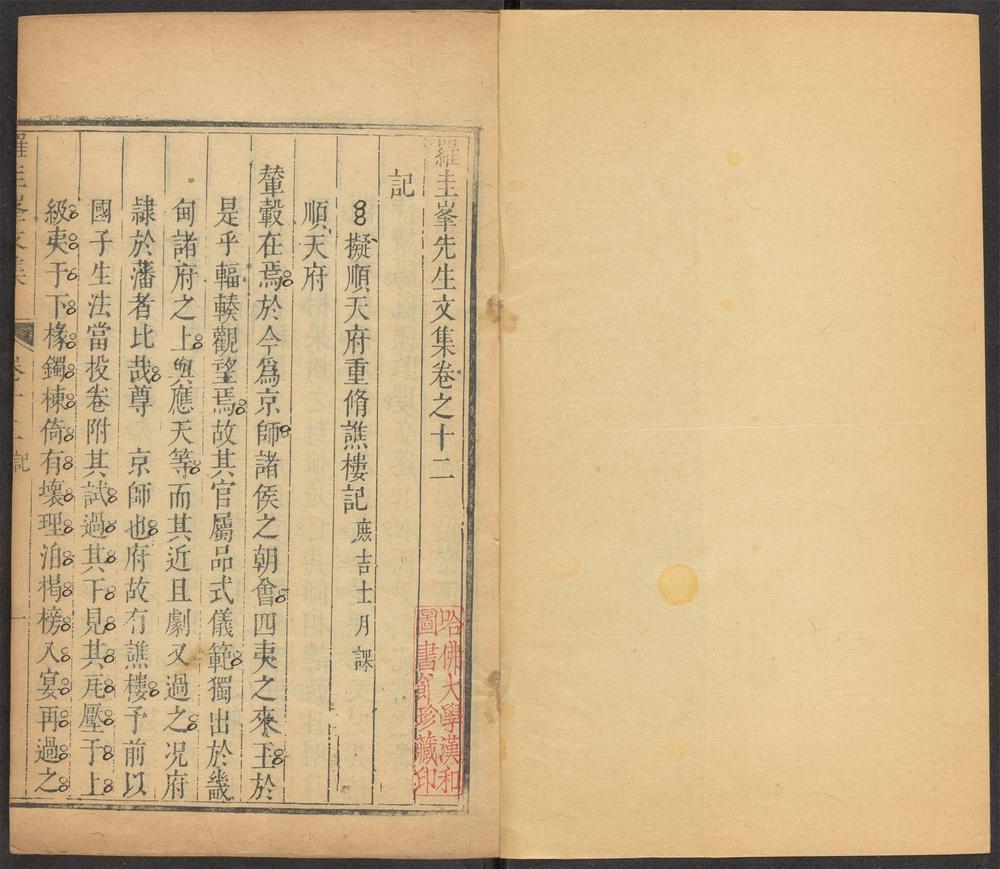 羅圭峯先生文集卷之十二
哈佛大學漢和
圖書館珍藏印
記
擬順天府重脩譙樓記 庶吉士月課
順天府
輦轂在焉於今爲京師諸侯之朝會四夷之來王於
是乎輻輳觀望焉故其官屬品式儀範獨出於畿
甸諸府之上與應天等而其近且劇又過之况府
隷於藩者比哉尊 京師也府故有譙樓予前以
國子生法當投卷附其試過其下見其瓦壓于上
級夷于下椽鐲棟倚有壞理洎楬榜入宴再過之
羅圭峯文集 卷十二記 一